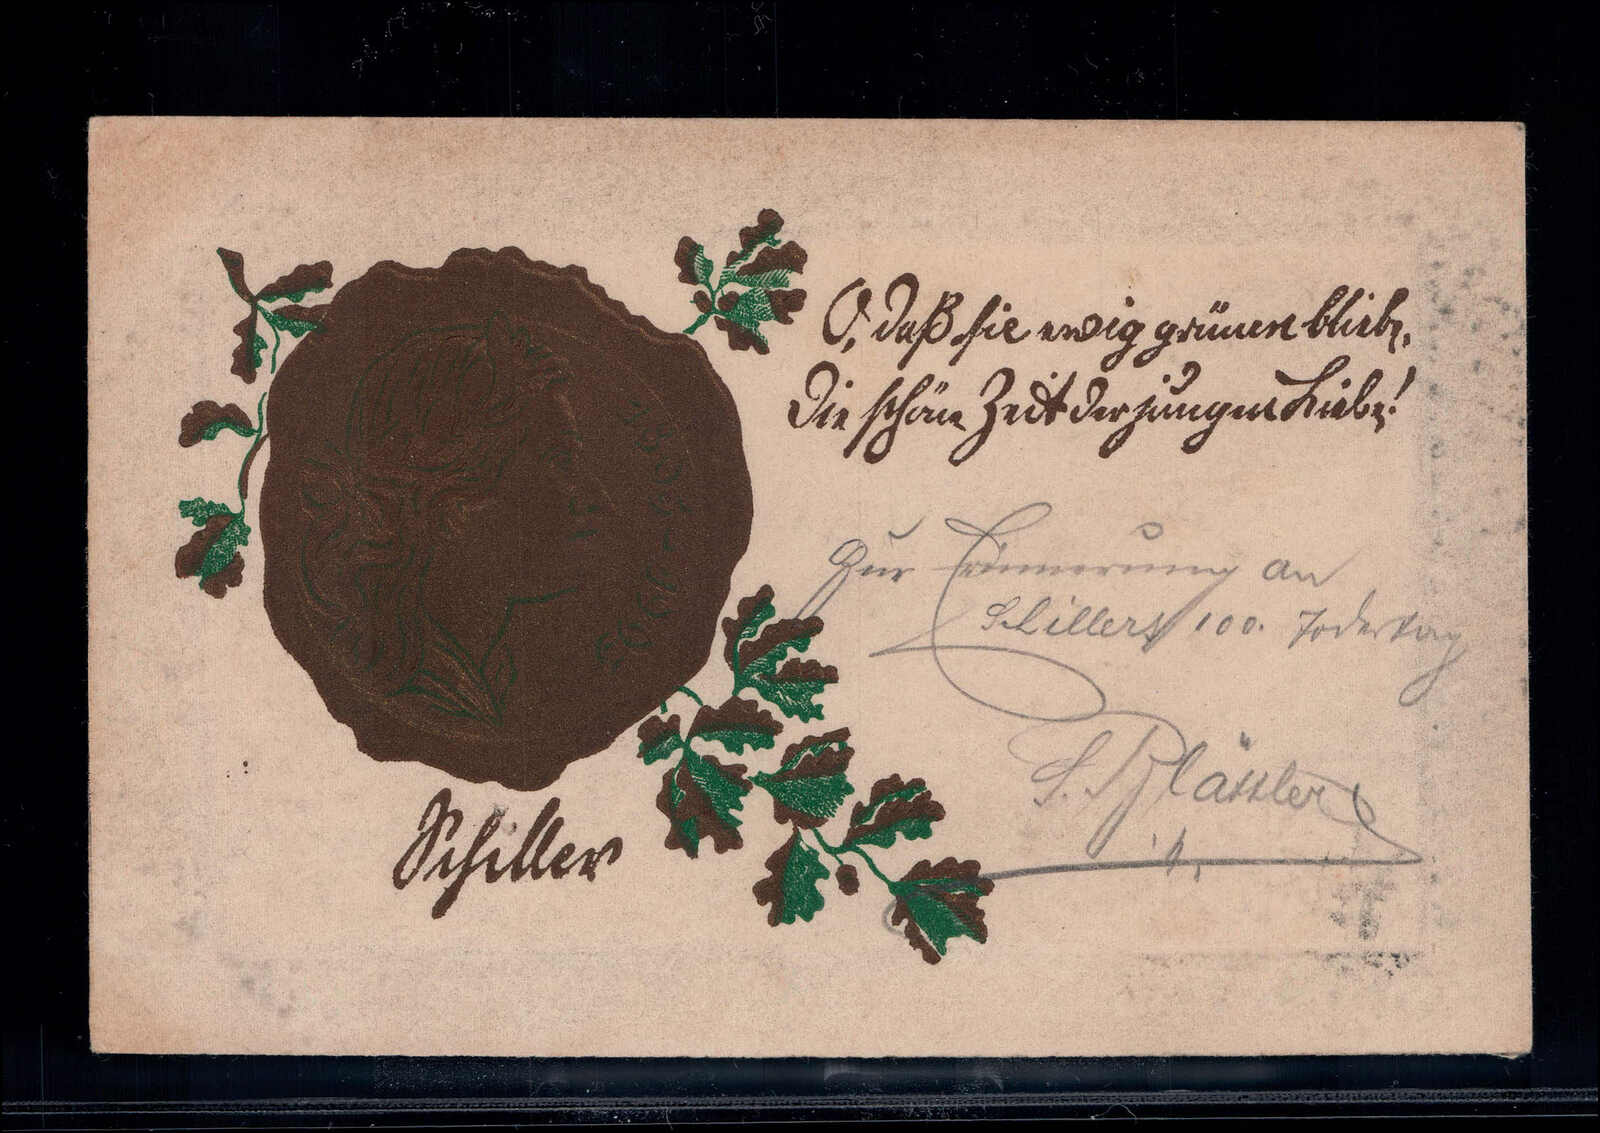 O, daß sie ewig grünen bliebe,
Die schöne Zeit der jungen Liebe!
Zur Erinnerung an
Schillers 100. Todestag
Blässler
Schiller